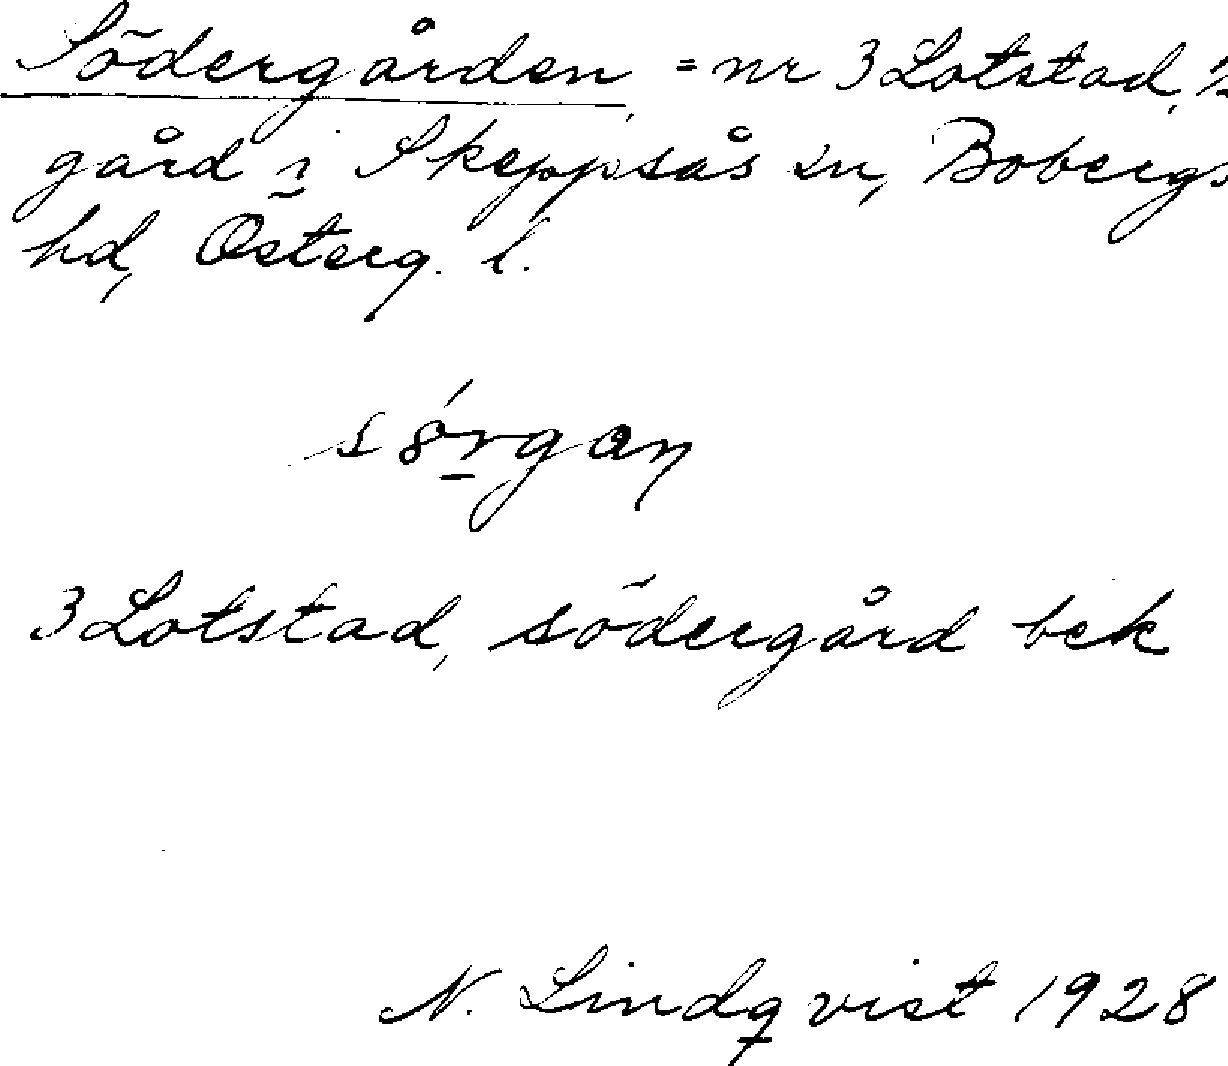 Södergården, = nr 3 Lotstad,
gård i Skeppsås sn, Bobergs
hd, Österg. l.
3 Lotstad, södergård bek
N. Lindqvist 1928